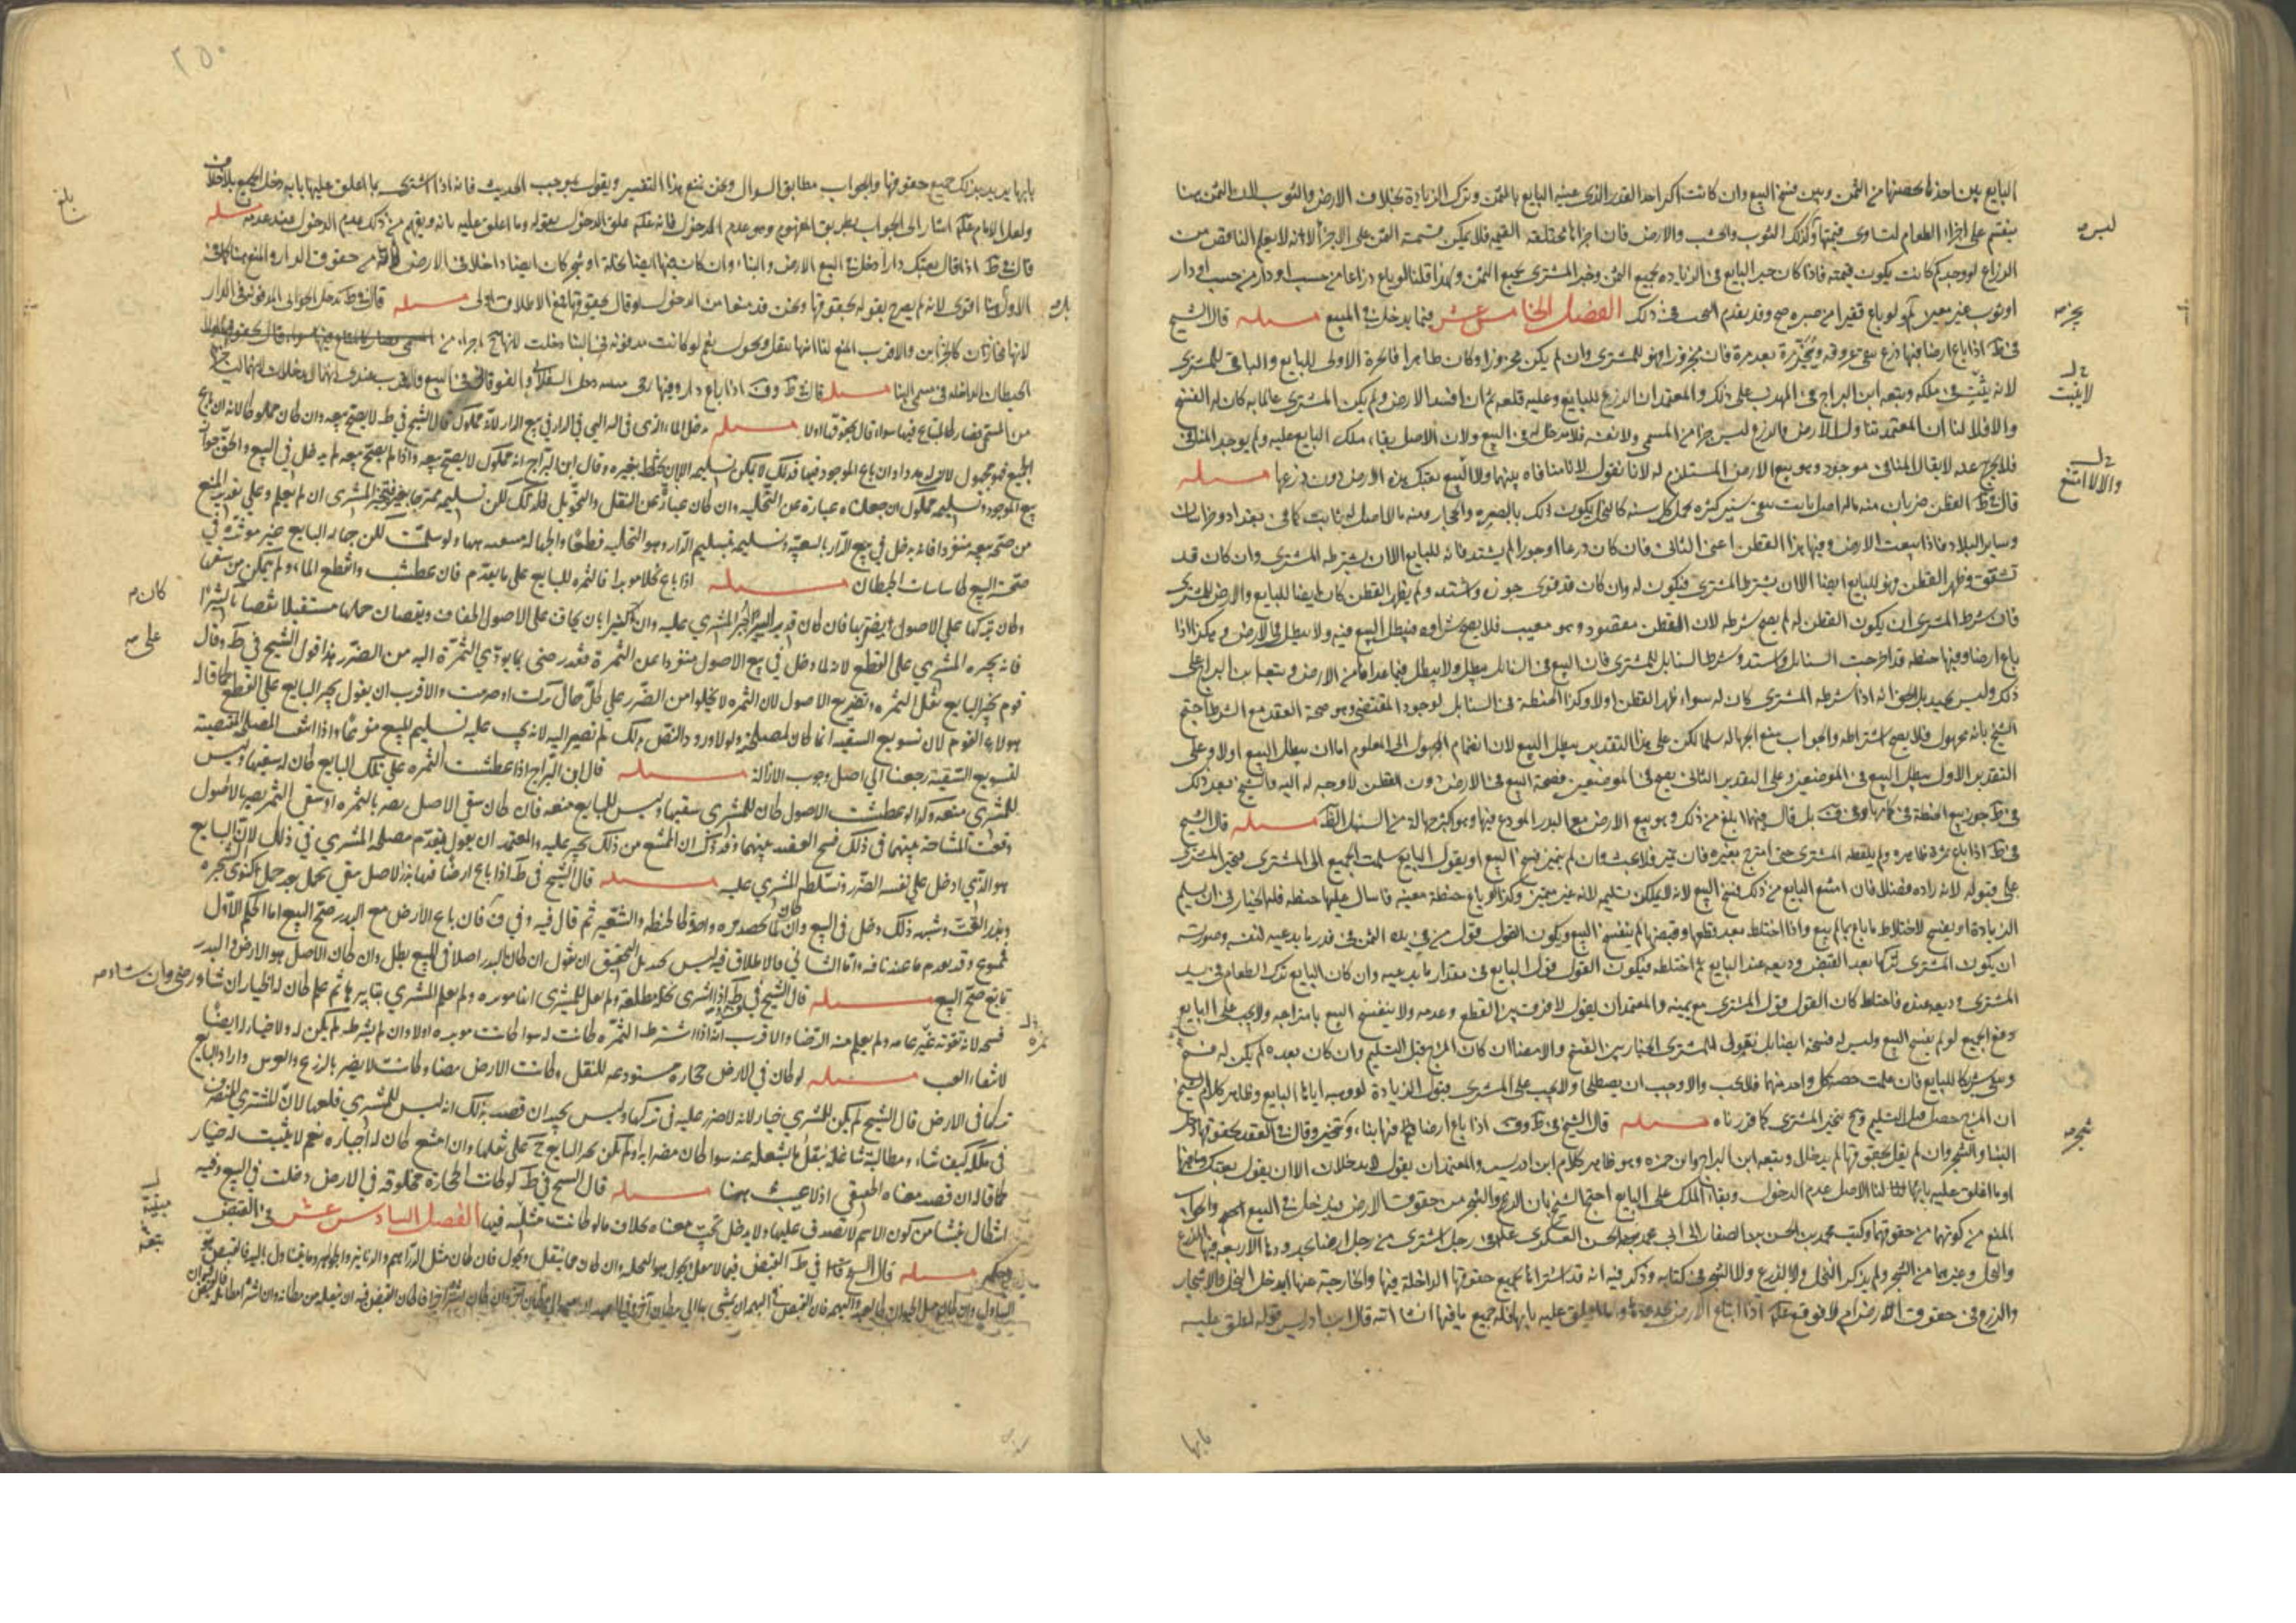 البايع بين اخذها بحصتها من الثمن وبين فسخ البيع وان كانت اكثر اخذ القدر الذي عينه البايع بالثمن وترك الزيادة بخلاف الارض والثوب لان الثمن هنا
ينقسم على اجزاء الطعام لتساوي قيمتها وكذلك الثوب والخشب والارض فان اجزائها مختلفة القيمة فلا يمكن قسمة الثمن على الاجزاء لانه لا يعلم الناقص من
الذراع لو وجد كم كانت يكون قيمته فاذا كان خير البايع في الزيادة بجميع الثمن وخير المشتري بجميع الثمن ولهذا قلنا لو باع ذراعا من خشب او دار من حسب في دار
او ثوب غير معين لم ولو باع قفيزا من صبرة صح وقد تقدم البحث في ذلك الفصل الخامس عشر فيما يدخل في المبيع مسئلة قال الشيخ
في ط اذا باع ارضا فيها زرع يبقى عروقه ويجز مرة بعد مرة فان مجزوزا فهو للمشتري وان لم يكن مجزوزا وكان ظاهرا فالجزة الاولى للبايع والباقي للمشتري
لانه ينبت في ملكه وتبعه ابن البراج في المهذب على ذلك والمعتمد ان الزرع للبايع وعليه قلعه ثم ان افسد الارض ولم يكن المشتري عالما به كان له الفسخ
والا فلا لنا ان المعتمد تناول الارض والزرع ليس جزءا من المسمى ولا نفسه فلا يدخل في البيع ولان الاصل بقاء ملك البايع عليه ولم يوجد المنافي
فلا يخرج عنه لا يقال المنافي موجود وهو بيع الارض المستلزم له لانا نقول لا منافاة بينهما ولا البيع بعتك هذه الارض دون زرعها مسئلة
قال في ط القطن ضربان منه ما له اصل ثابت يبقى سنين كثيرة يحمل كل سنة كالنخل يكون ذلك بالبصرة والحجاز ومنه ما لا اصل له ثابت كما في بغداد وخراسان
وساير البلاد فاذا بيعت الارض وفيها هذا القطن اعني الثاني فان كان زرعا او جوزا لم يشتد فانه للبايع الا ان يشترطه المشتري وان كان قد
تشقق وظهر القطن فهو للبايع ايضا الا ان يشترط المشتري فيكون له وان كان قد قوي جوزه واشتد ولم يظهر القطن كان ايضا للبايع والارض للمشتري
فان شرط المشتري ان يكون القطن له لم يصح شرطه لان القطن مقصود وهو معيب فلا يصح شراؤه فيبطل البيع فيه ولا يبطل في الارض وهكذا اذا
باع ارضا وفيها حنطة قد اخرجت السنابل واشتد وشرط السنابل للمشتري فان البيع في السنابل يبطل ولا يبطل فيما عداها من الارض وتبعه ابن البراج على
ذلك وليس بجيد بل الحق انه اذا شرطه المشتري كان له سواء ظهر القطن اولا وكذا الحنطة في السنابل لوجود المقتضي وهو صحة العقد مع الشرط احتج
الشيخ بانه مجهول فلا يصح اشتراطه والجواب منع الجهالة سلمنا لكن على هذا التقدير يبطل البيع لان انضمام المجهول الى المعلوم اما ان يبطل البيع اولا وعلى
التقدير الاول يبطل البيع في الموضعين وعلى التقدير الثاني يصح في الموضعين فصحة البيع في الارض دون القطن لا وجه له اليه والشيخ بعد ذلك
في ط جوز بيع الحنطة في كمامها وفي ف بل قال فيهما ابلغ من ذلك وهو بيع الارض مع البذر المودع فيها وهو اكثر جهالة من السنبل الظ مسئلة قال الشيخ
في ط اذا باع ثمرة ظاهرة ولم يلقطه المشتري حتى امتزج بغيره فان تميز فلا بحث وان لم يتميز فسخ البيع او يقول البايع سلمت الجميع الى المشتري فيجبر المشتري
على قبوله لانه زاده فضلا فان امتنع البايع من ذلك فسخ البيع لانه لا يمكن تسليمه لانه غير متميز وكذا لو باع حنطة معينة فاسال عليها حنطة فله الخيار في ان يسلم
الزيادة او يفسخ لاختلاط ما باع بما لم يبع واذا اختلط بعد قطعها وقبضها لم ينفسخ البيع ويكون القول قول من في يده الثمن في قدر ما يدعيه لنفسه وصورته
ان يكون المشتري تركها بعد القبض وديعة عند البايع ثم اختلطه فيكون القول قول البايع في مقدار ما يدعيه وان كان البايع ترك الطعام في يد
المشتري وديعة عنده فاختلط كان القول قول المشتري مع يمينه والمعتمد ان يقول لا فرق بين القطع وعدمه ولا ينفسخ البيع بامتزاجه ولا يجب على البايع
دفع الجميع لو لم يفسخ البيع وليس له فسخه ايضا بل نقول للمشتري الخيار بين الفسخ والامضاء ان كان المزج قبل التسليم وان كان بعده لم يكن له فسخ
وبقي شركا للبايع فان علمت حصة كل واحد منهما فلا بحث والا وجب ان يصطلحا ولا يجب على المشتري قبول الزيادة لو وهبه اياها البايع وظاهر كلام الشيخ
ان المزج حصل قبل التسليم وح يتخير المشتري كما قررناه مسئلة قال الشيخ في ط وف اذا باع ارضا فيها بناء وشجر وقال في العقد بحقوقها دخل
البناء والشجر وان لم يقل بحقوقها لم يدخلا وتبعه ابن البراج وابن حمزة وهو ظاهر كلام ابن ادريس والمعتمد ان يقول لا يدخلان الا ان يقول بعتك وما فيها
او ما اغلق عليه بابها لنا الاصل عدم الدخول وبقاء الملك على البايع احتج الشيخ بان الزرع والشجر من حقوق الارض فيدخل في البيع والجواب
المنع من كونهما من حقوقها وكتب محمد بن الحسن بن الصفار الى ابي محمد الحسن العسكري في رجل اشترى من رجل ارضا بحدودها الاربعة فيها الزرع
والنخل وغيرهما من الشجر ولم يذكر النخل ولا الزرع ولا الشجر في كتابه وذكر فيه انه قد اشتراها بجميع حقوقها الداخلة فيها والخارجة عنها ايدخل النخل والاشجار
والزرع في حقوق الارض ام لا فوقع اذا ابتاع الارض بحدودها وما اغلق عليه بابها فله جميع ما فيها ان شاء الله قال ابن ادريس قوله اغلق عليه
ليس
يجز
لا ينبت
والا لامتنع
شجر
بابها
٢٥٠
بابها يريد بذلك جميع حقوقها والجواب مطابق السوال ونحن نمنع هذا التفسير ويقول بموجب الحديث فانه اذا اشترى بما اغلق عليها بابه دخل الجميع بلا خلاف
ولعل الامام اشار الى الجواب بطريق المفهوم وهو عدم الدخول فانه علق الدخول بقوله وما اغلق عليه بابه ويفهم من ذلك عدم الدخول عند عدمه مسئلة
قال في ط اذا قال بعتك دارا دخل في البيع الارض والبناء وان كان فيها ايضا نخلة او شجر كان ايضا داخلا في الارض لانه من حقوق الدار والمنع هنا كالمنع في
الاول هنا اقوى لانه لم يصرح بقوله بحقوقها ونحن قد منعنا من الدخول لو قال بحقوقها فمع الاطلاق اولى مسئلة قال في ط تدخل الخوابي المدفونة في الدار
لانها مخازن كالخزاين والاقرب المنع لنا انها تنقل وتحول نعم لو كانت مدفونة في البناء دخلت لانها ح اجزاء من
الحيطان الداخلة في مسمى البناء مسئلة قال في ط وف اذا باع دارا وفيها رحى مبنية دخل السفلاني والفوقاني في البيع والاقرب عندي انهما لا يدخلان لانهما ليسا جزءا
من المسمى فصار كالمتاع فيها سواء قال بحقوقها اولا مسئلة دخل الماء الذي في البئر التي في الدار في بيع الدار لانه مملوك قال الشيخ في ط لا يصح بيعه وان كان مملوكا لانه ان باع
الجميع فهو مجهول لان له مددا وان باع الموجود فيها فذلك لا يمكن تسليمه الا بان يختلط بغيره وقال ابن البراج انه مملوك لا يصح بيعه واذا لم يصح بيعه لم يدخل في البيع والحق جواز
بيع الموجود وتسليمه مملوك ان جعلناه عبارة عن التخلية وان كان عبارة عن النقل والتحويل فكذلك لكن تسليمه ممتزجا بغيره فيتخير المشتري ان لم يعلم وعلى تقدير المنع
من صحة بيعه منفردا فانه يدخل في بيع الدار بالتبعية وتسليمه بتسليم الدار وهو التخلية قطعا والجهالة ولو سلمت لكن جهالة البايع غير موثرة في
صحة البيع كاساسات الحيطان مسئلة اذا باع نخلا موبرا فالثمرة للبايع على ما تقدم فان عطشت وانقطع الماء ولم يتمكن من سقيها
وكان تركها على الاصول يضر بها فان كان قدر اليسير اجبر المشتري عليه وان كان كثيرا بان يخاف على الاصول الجفاف ونقصان حملها مستقبلا نقصانا كثيرا
فانه يجبره المشتري على القطع لانه لما دخل في بيع الاصول منفردا عن الثمرة فقد رضي بما يودي الثمرة اليه من الضرر هذا قول الشيخ في ط وقال
قوم يجبر البايع نقل الثمرة وتفريغ الاصول لان الثمرة لا يخلوا من الضرر على كل حال تركت او صرمت والاقرب ان يقول يجبر البايع على القطع كما قاله
هولاء القوم لان تسويغ السقية انما كان لمصلحته ولولا ورود النقل بذلك لم نصير اليه لانه يجب عليه تسليم المبيع مفرغا واذا انتفت المصلحة المقتضية
لتسويغ السقية رجعنا الى اصل وجوب الازالة مسئلة قال ابن البراج اذا عطشت الثمرة على ملك البايع كان له سقيها وليس
للمشتري منعه وكذا لو عطشت الاصول كان للمشتري سقيها وليس للبايع منعه فان كان سقي الاصل يضر بالثمرة او سقي الثمر يضر بالاصول
وقعت المشاحة بينهما في ذلك فسخ العقد بينهما وقد ذكر ان الممتنع من ذلك يجبر عليه والمعتمد ان يقول بتقديم مصلحة المشتري في ذلك لان البايع
هو الذي ادخل على نفسه الضرر وتسلطه للمشتري عليه مسئلة قال الشيخ في ط اذا باع ارضا فيها بذر لاصل يبقي يحمل بعد حمل كنوى شجرة
وبذر القت وشبه ذلك دخل في البيع وان كان لما يحصد مرة واحدة كالحنطة والشعير ثم قال فيه وفي ف فان باع الارض مع البذر صح البيع اما الحكم الاول
فممنوع وقد تقدم ما عندنا فيه واما الثاني فالاطلاق فيه ليس بجيد بل التحقيق ان نقول ان كان البذر اصلا في المبيع بطل وان كان الاصل هو الارض والبذر
تابع صح البيع مسئلة قال الشيخ في ط اذا اشترى نخلا مطلعة ولم يعلم المشتري انها موبرة ولم يعلم المشتري بتابيرها ثم علم كان له الخيار ان شاء رضي وان شاء
فسخه لانه تفوته ثمرة عامه ولم يعلم منه الرضا والاقرب انه اذا اشترط الثمرة كانت له سواء كانت موبرة اولا وان لم يشترطه لم يكن له ولا خيار له ايضا
لانتفاء العيب مسئلة لو كان في الارض حجارة مستودعة للنقل وكانت الارض بيضاء وكانت لا يضر بالزرع والغرس واراد البايع
تركها في الارض قال الشيخ لم يكن للمشتري خيار لانه لا ضرر عليه في تركها وليس بجيد ان قصد بذلك انه ليس للمشتري قلعها لان للمشتري التصرف
في ملكه كيف شاء ومطالبة شاغله بنقل ما يشغله عنه سواء كان مضرا به اولم يكن فيجبر البايع ح على نقلها وان امتنع كان له اجباره نعم لا يثبت له خيار
كما قاله ان قصد معناه الحقيقي اذ لا عيب هنا مسئلة قال الشيخ في ط لو كانت الحجارة مخلوقة في الارض دخلت في البيع وفيه
اشكال ينشأ من كون الاسم لا يصدق عليها ولا يدخل تحت معناه بخلاف ما لو كانت مثبتة فيها الفصل السادس عشر في القبض
وحكمه مسئلة قال الشيخ في ط القبض فيما لا ينقل ويحول هو التخلية وان كان مما ينقل ويحول فان كان مثل الدراهم والدنانير والجواهر وما يتناول باليد فالقبض هو
التناول وان كان مثل الحيوان كالعبد والبهيمة فان القبض في البهيمة ان يمشي بها الى مكان آخر وفي العبد ان يقيمه الى مكان آخر وان كان اشترى جزافا كان القبض فيه ان ينقله من مكانه وان اشتراه مكايلة فالقبض
بلغ
كان
على
ثمرة
مبقية